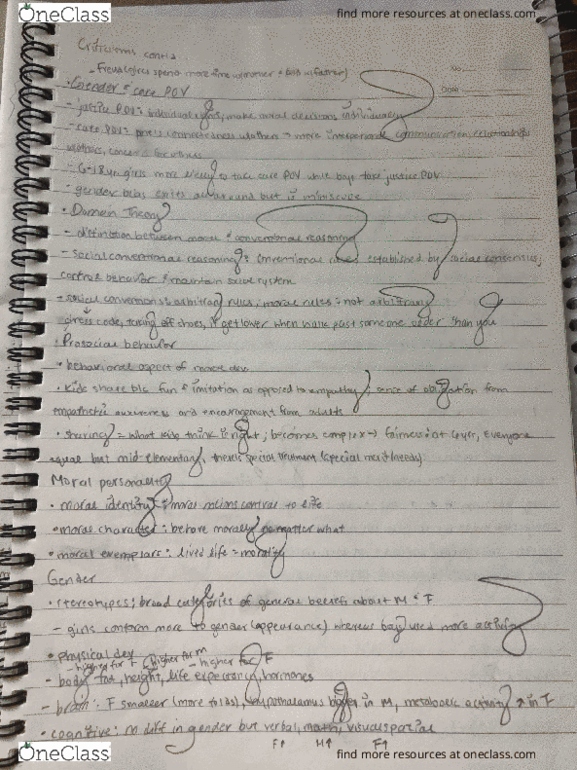 OneClass
find more resources at oneclass.com
Criticisms contd.
- Freud logics spend more time w/ mother
• Gender & care POV
- justice POV: individual rights, make moral decisions individually
- care POV: connectedness w/ others → more interpersonal communication, relationships
w/ others, concern for others
: 6-18 yr girls more likely to take care POV while boys take justice POV
- gender bias around but is miniscule
• Domain Theory
- distinction between moral & conventional reasoning
- social conventional reasoning: conventional rules established by social consensus,
control behavior & maintain social system
- social conventions: arbitrary rules, moral rules: not arbitrary
dress code, taking off shoes, get lower when walk past someone older than you
• Prosocial behavior
• behavioral aspect of moral dev
• kids share b/c fun & imitation as opposed to empathy, sense of obligation from
empathetic awareness and encouragement from adults
• sharing = what kids think is right, becomes complex → fairness in 4 yrs, everyone
equal but mid elementary, there's special treatment (special merit/needs)
Moral personality
• moral identity: moral notions central to life
• moral character: behave morally no matter what
• moral exemplars: lived life = morality
Gender
• stereotypes: broad categories of general beliefs about M & F
- girls conform more to gender (appearance) whereas boys used more activity
• physical dev
- higher for F - higher for M - higher for F
- body fat, height, life expectancy, hormones
- brain: F smaller (more folds), hypothalamus bigger in M, metabolic activity ↑ in F
• cognitive: n diff in gender but verbal, math, visuospatial
F↑ M↑ F↑
OneClass
find more resources at oneclass.com